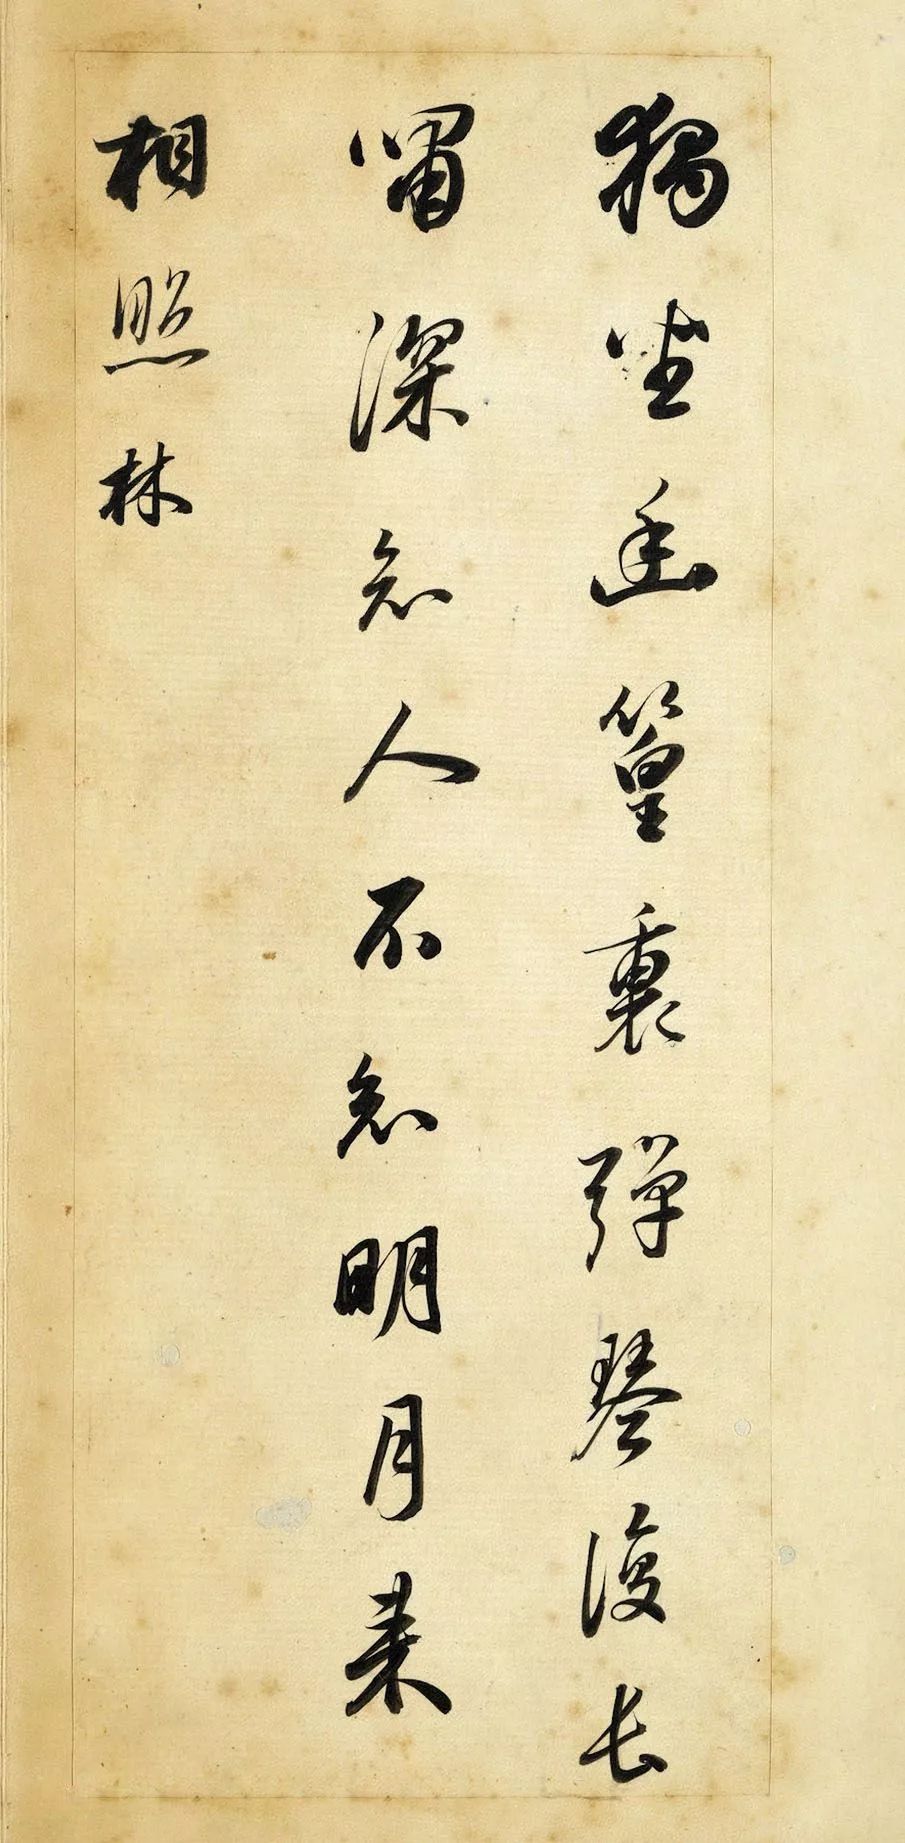 獨坐幽篁裏彈琴復長
嘯深知人不知明月來
相照林